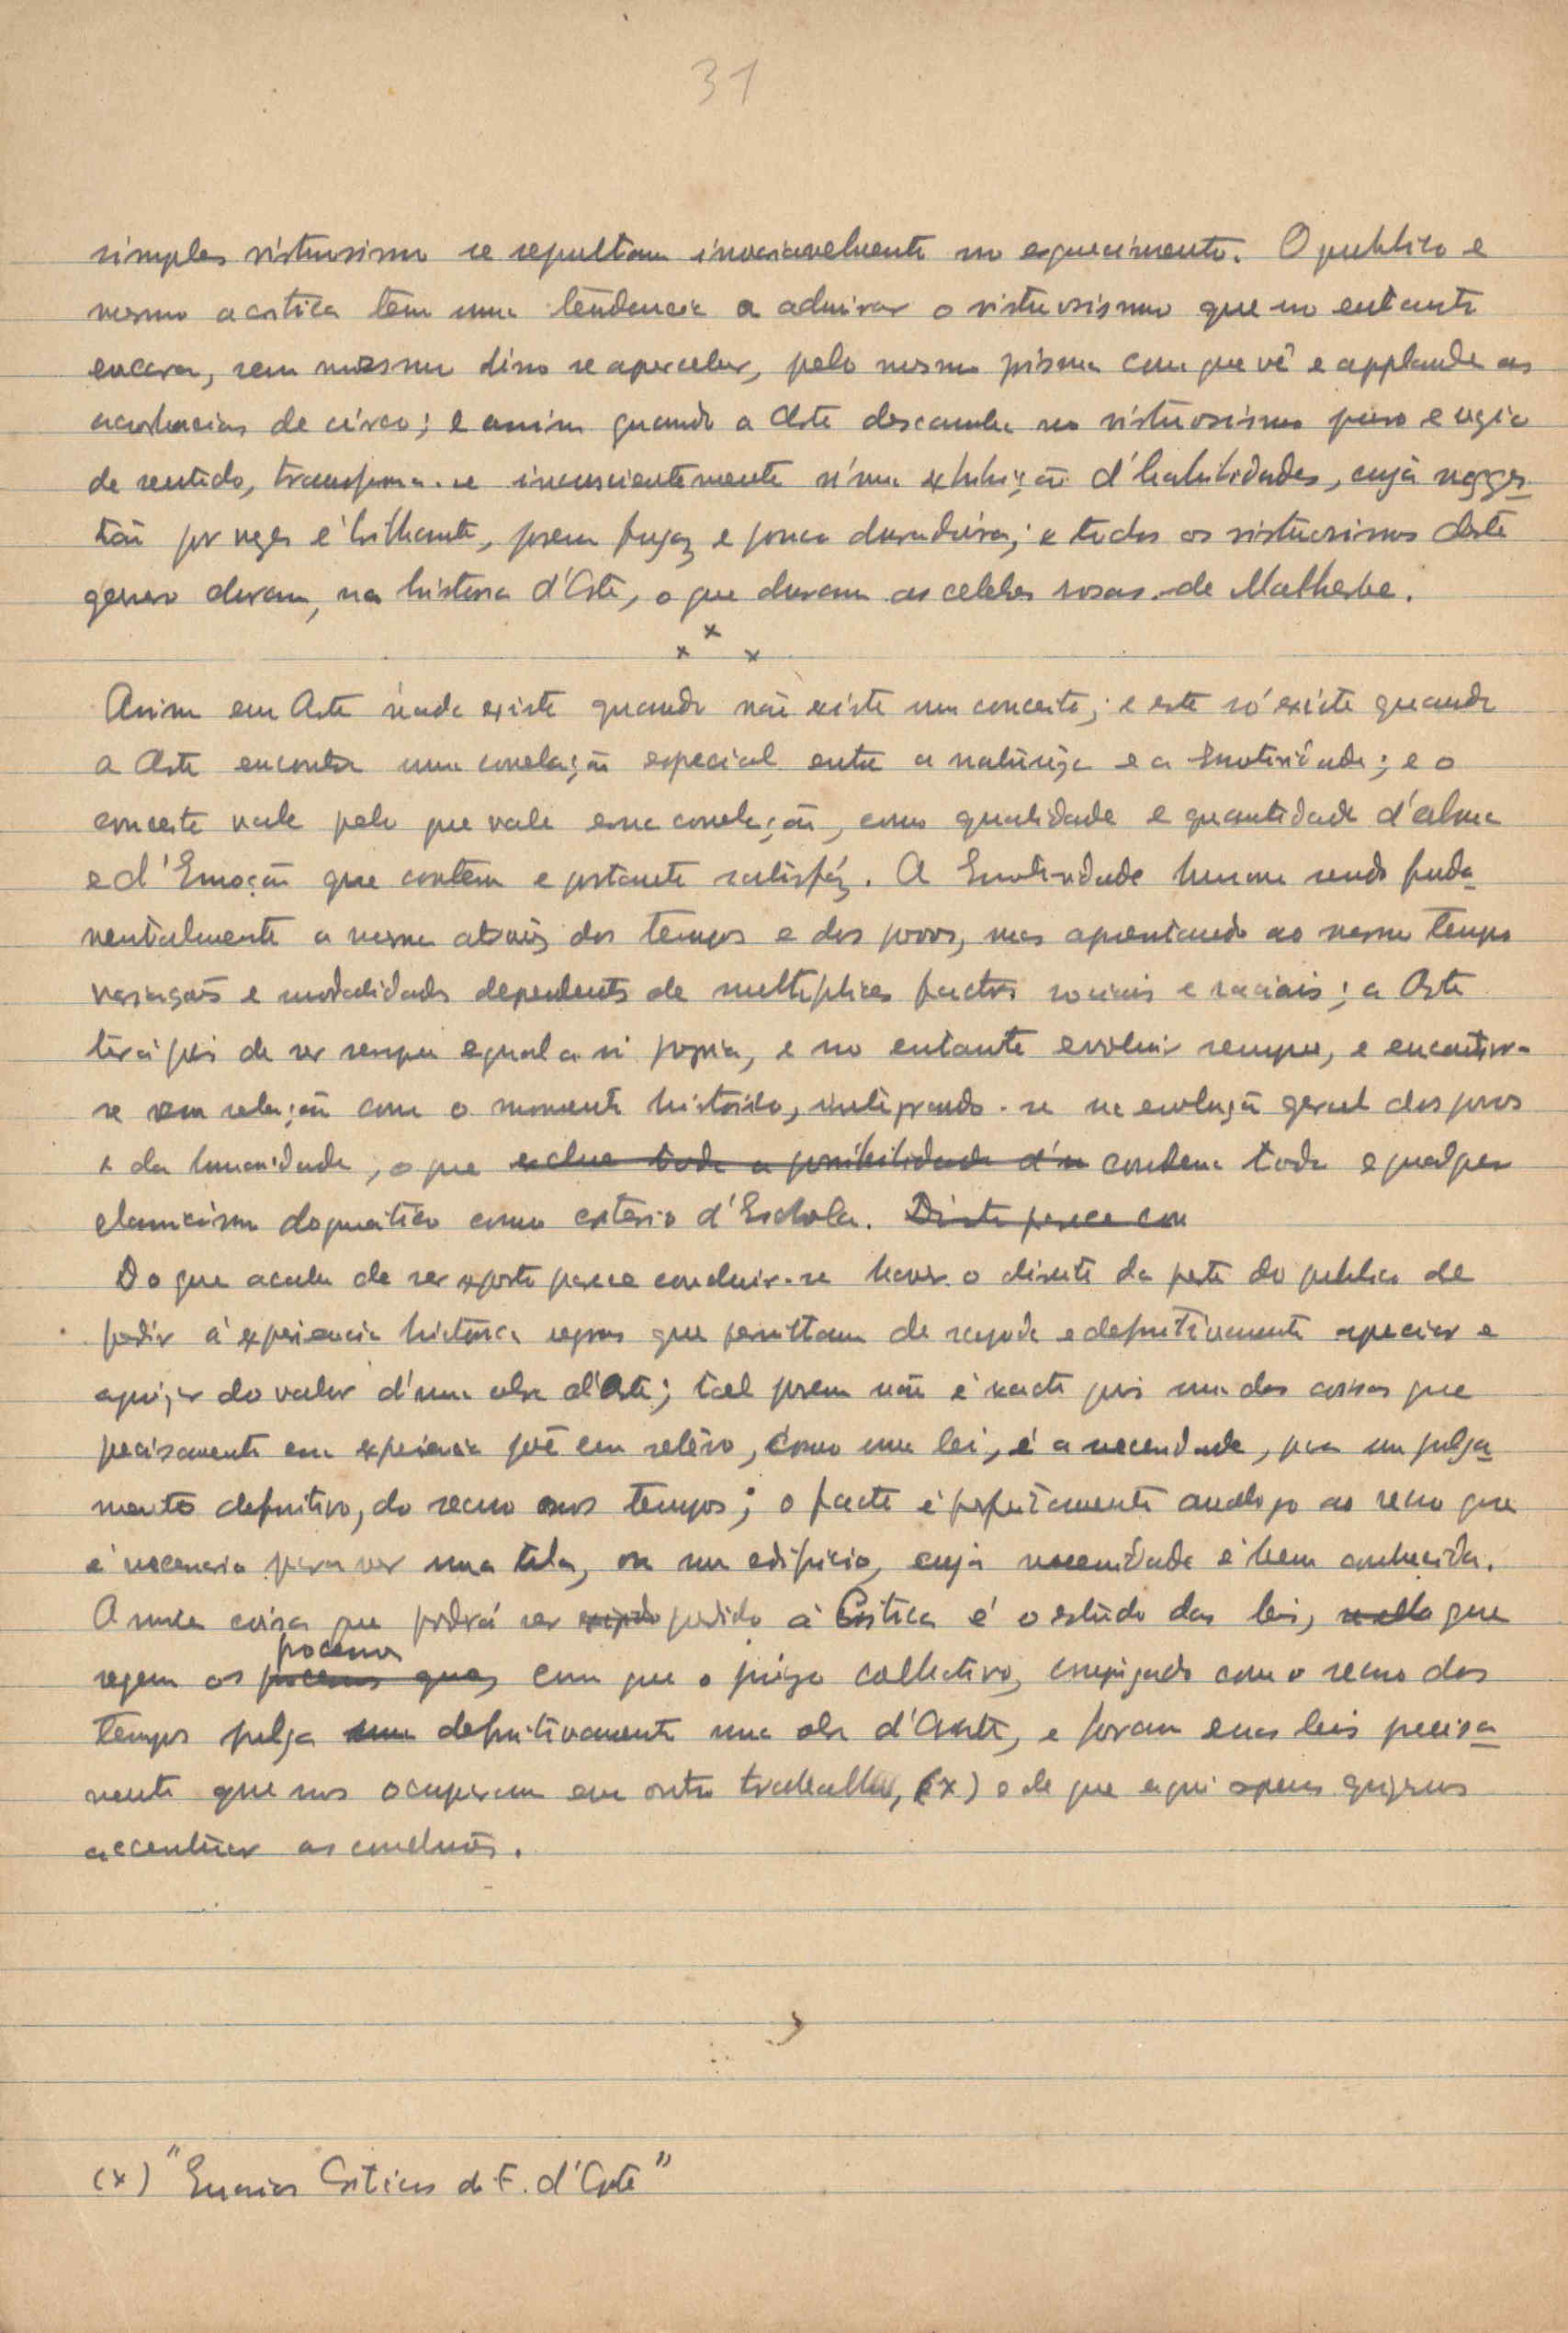 31
simples virtuosismo se sepultam invariavelmente no esquecimento. O publico e
mesmo a critica têm uma tendencia a admirar o virtuosismo que no entanto
encara, sem mesmo disso se aperceber, pelo mesmo prisma com que vê e applaude as
acrobacias de circo; e assim quando a Arte descamba no virtuosismo puro e vazio
de sentido, transforma-se inconscientemente n'uma exhibição d'habilidades, cuja sugges-
tão por vezes é brilhante, porem fugaz e pouco duradoira; e todos os virtuosismos deste
genero duram, na historia d'Arte, o que duram as celebres rosas de Malherbe.
x x x
Assim em Arte nada existe quando não existe um conceito; e este só existe quando
a Arte encontra uma correlação especial entre a natureza e a Emotividade; e o
conceito vale pelo que vale essa correlação, como qualidade e quantidade d'alma
e d'Emoção que contem e portanto satisfáz. A Emotividade humana sendo funda-
mentalmente a mesma atravéz dos tempos e dos povos, mas apresentando ao mesmo tempo
variações e modalidades dependentes de multiplices factores sociais e raciais; a Arte
terá pois de ser sempre egual a si propria, e no entanto evoluir sempre, e encontrar-
se em relação com o momento historico, integrando-se na evolução geral dos povos
e da humanidade, o que exclue toda a possibilidade d'u condena todo e qualquer
classicismo dogmatico como criterio d'Eschola. Disto parece con
Do que acaba de ser exposto parece concluir-se haver o direito da parte do publico de
pedir á experiencia historica regras que permittam de seguida e definitivamente apreciar e
ajuizar do valor d'uma obra d'Arte; tal porem não é exacto pois uma das coisas que
precisamente essa experiencia põe em relêvo, como uma lei, é a necessidade, para um julga-
mento definitivo, do recuo nos tempos; o facto é perfeitamente analogo ao recuo que
é necessario para ver uma tela, ou um edificio, cuja necessidade é bem conhecida.
A unica coisa que poderá ser exigido pedido á Critica é o estudo das leis, que
regem os processos processos que, com que o juizo collectivo, conjugado com o recuo dos
tempos julga uma definitivamente uma obra d'Arte, e foram essas leis precisa-
mente que nos ocuparam em outro trabalho, (x) e de que aqui apenas quizemos
accentuar as conclusões.
(x) "Ensaios Criticos de F. d'Arte"